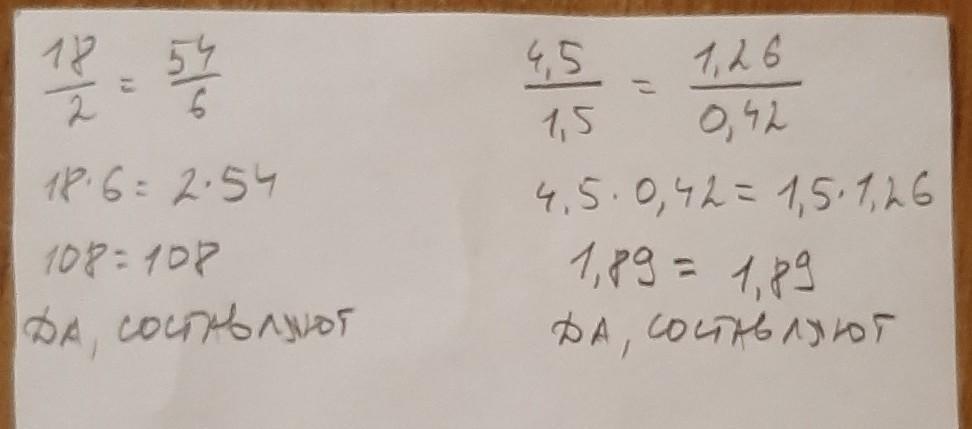 18/2 = 54/6
18·6 = 2·54
108 = 108
ДА, СОСТАВЛЯЮТ
4,5/1,5 = 1,26/0,42
4,5·0,42 = 1,5·1,26
1,89 = 1,89
ДА, СОСТАВЛЯЮТ